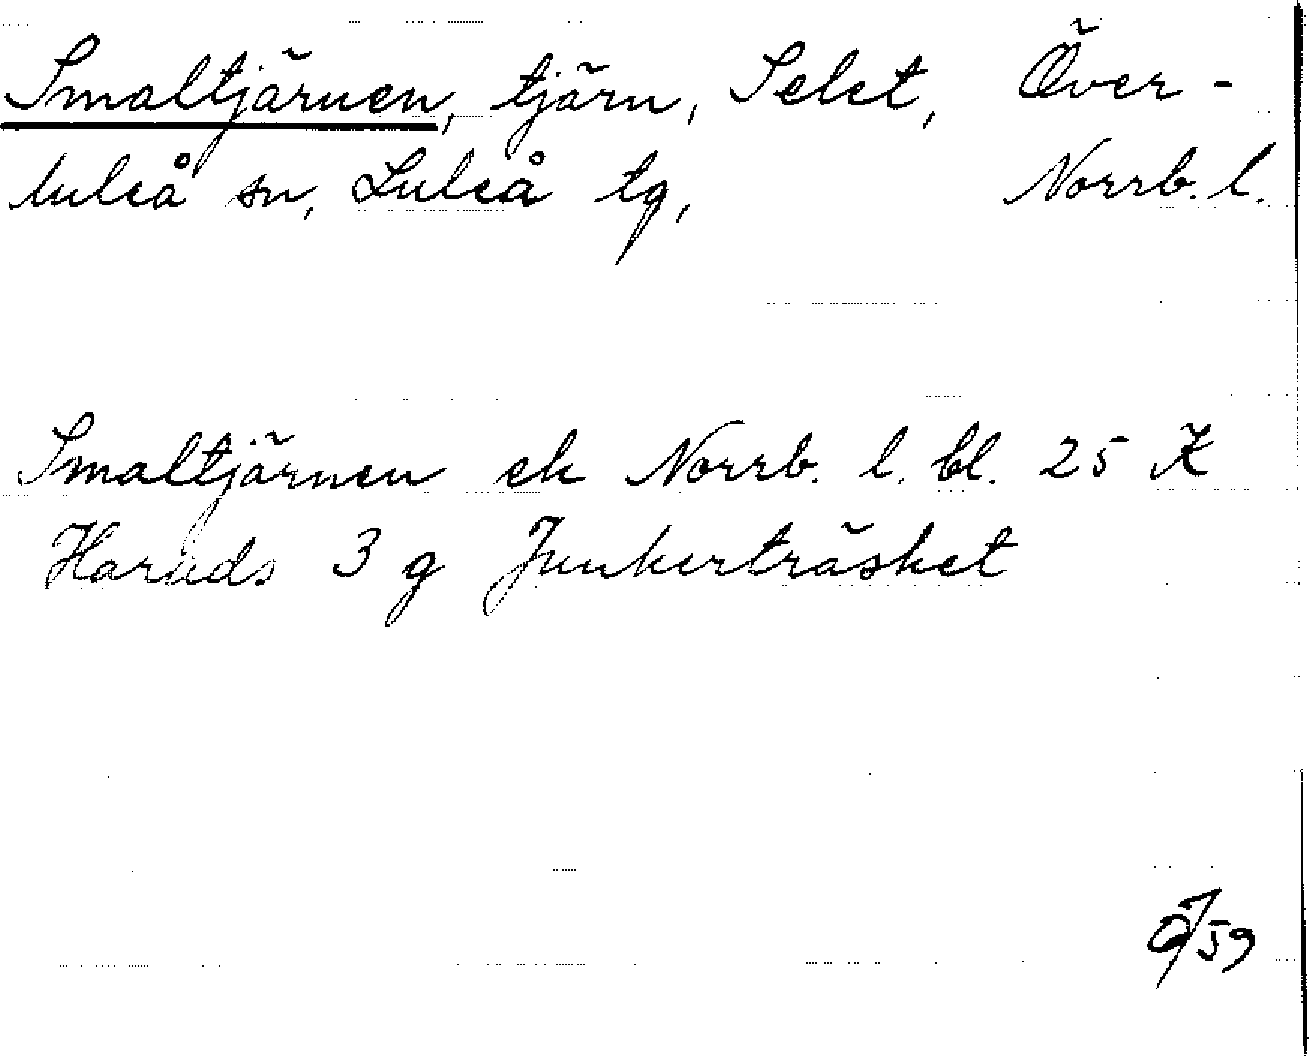 Smaltjärnen, tjärn, Selet, Över-
luleå sn, Luleå tg, Norrb. l.
Smaltjärnen ek Norrb. l. bl. 25 K
Harads 3 g Junkerträsket
59